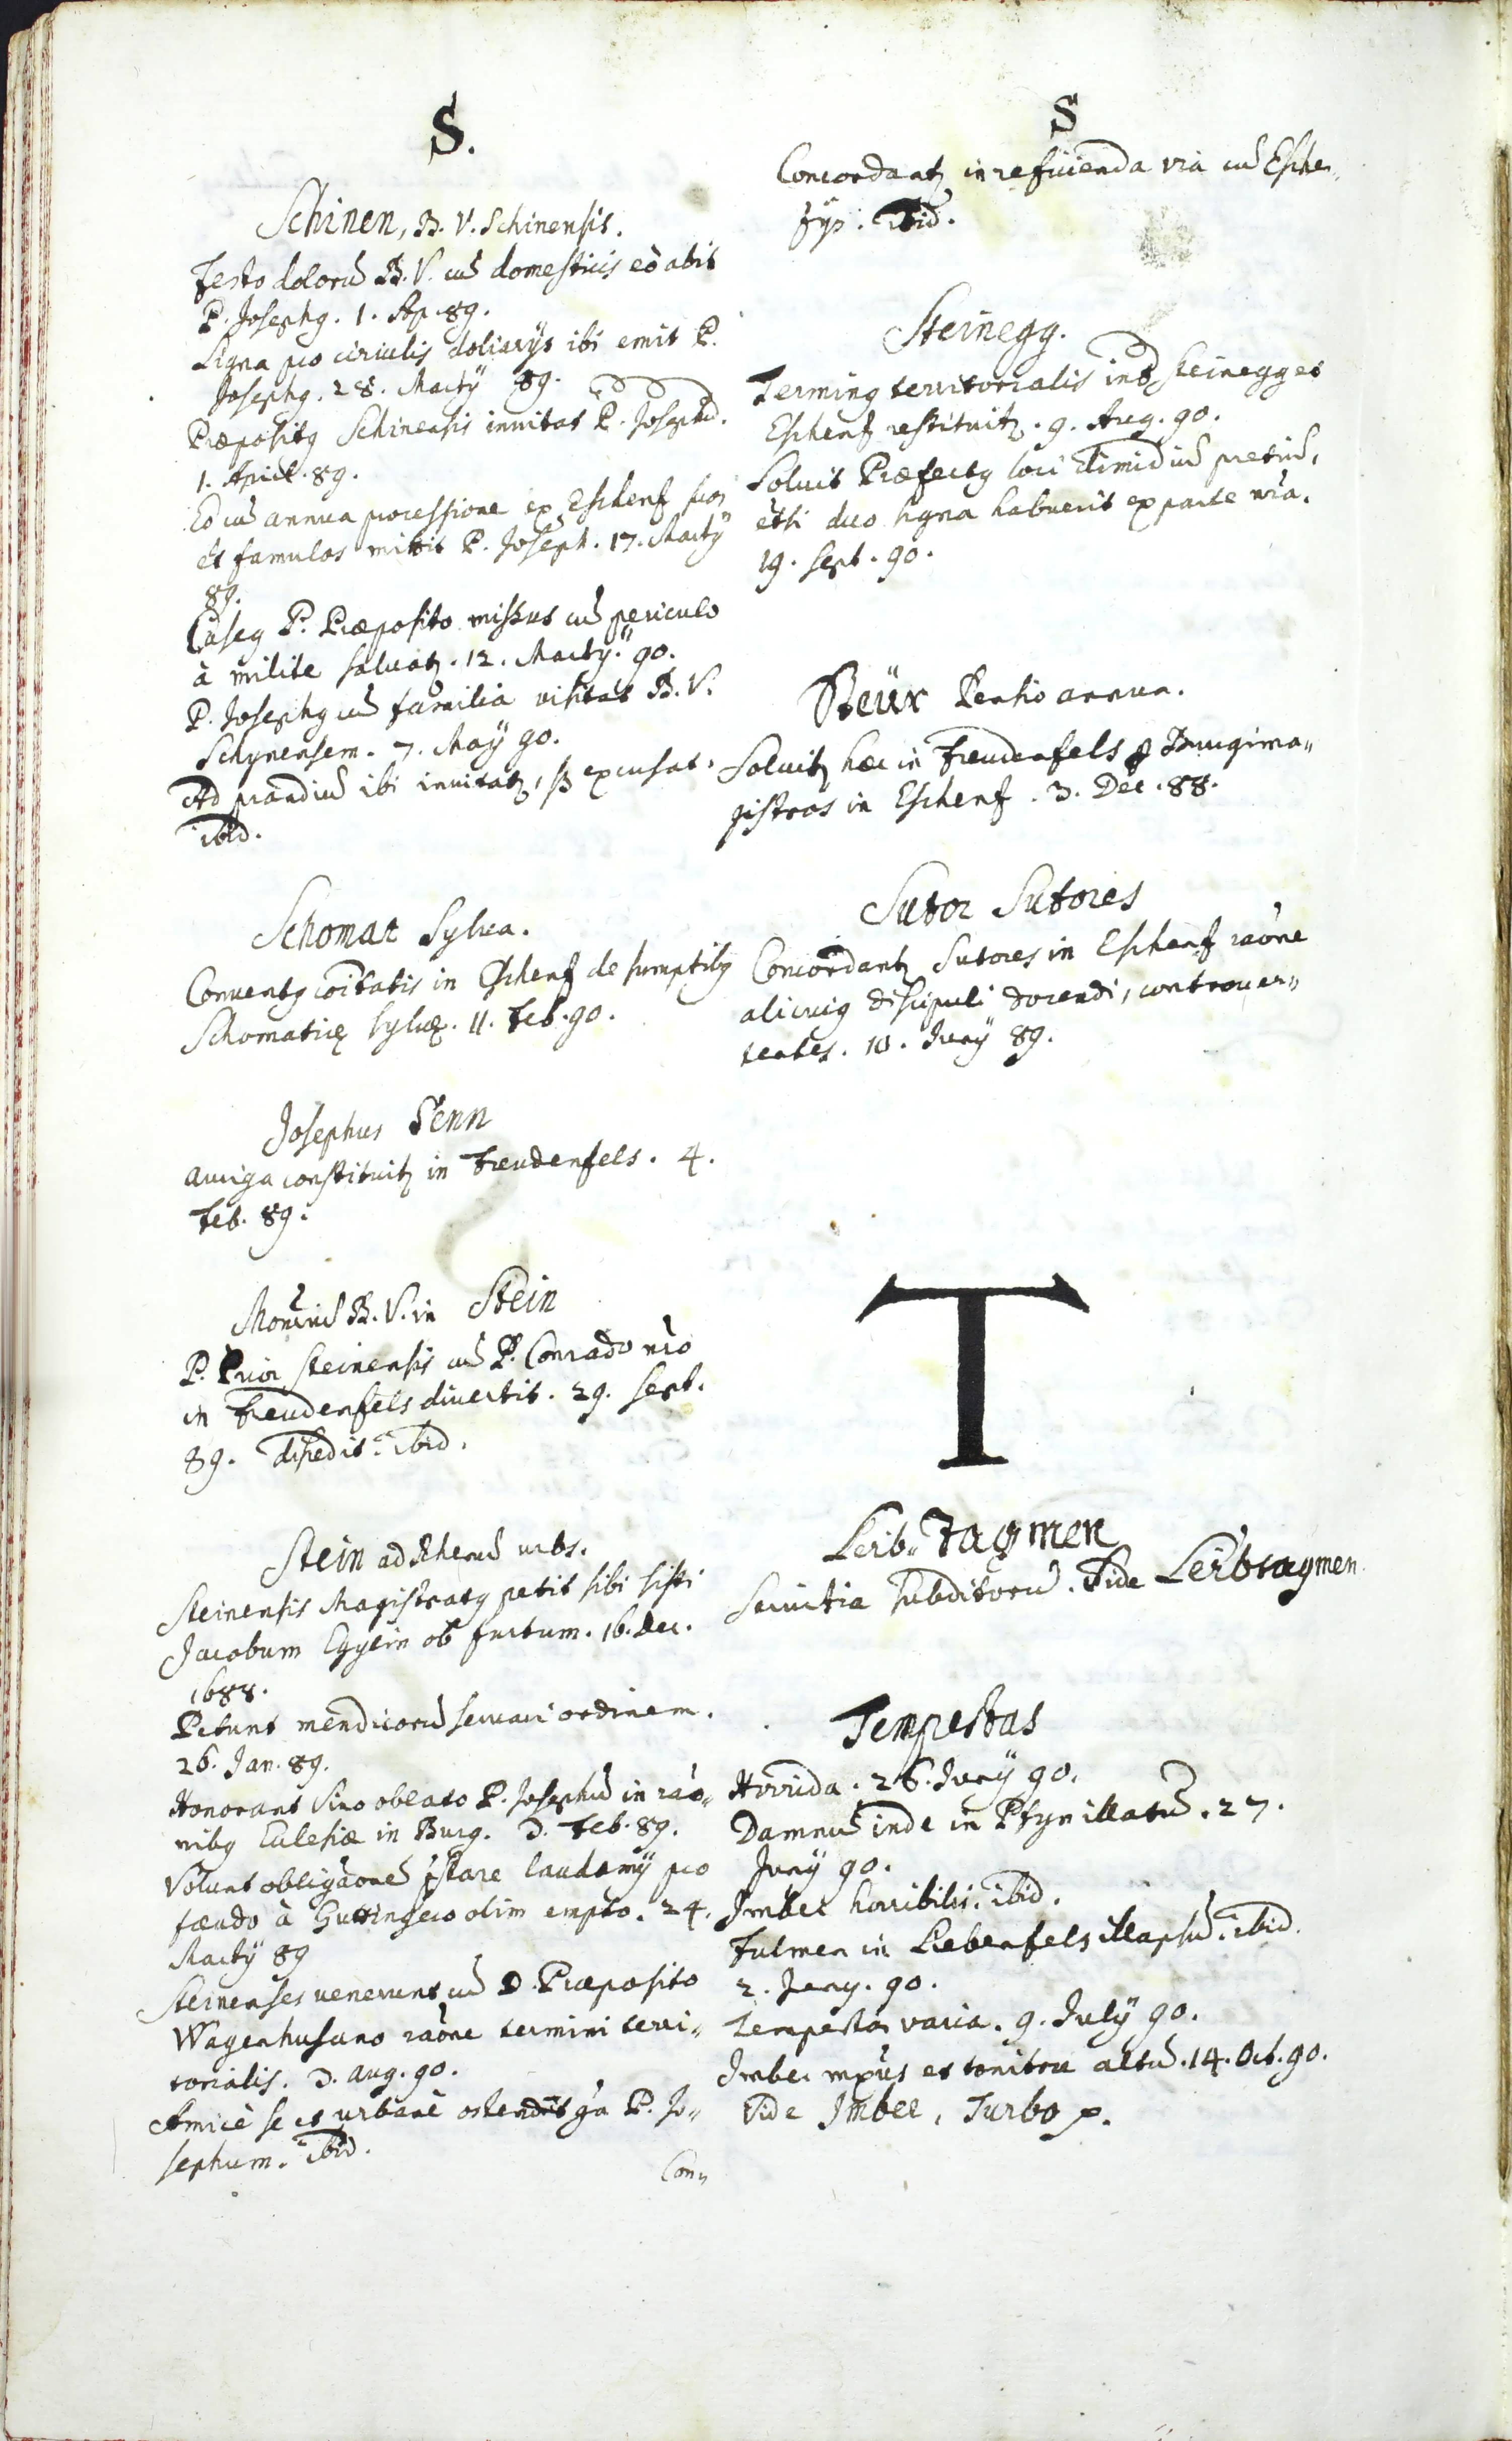 S.
Schinen, B. V. Schinensis.
Festo dolorũ B. V. cũ domesticis eò abit
P. Josephꝯ. 1. Ap. 89.
Ligna pro circulis doliarÿs ibi emit P.
Josephꝯ. 28. Martÿ 89.
Præpositꝯ Schinensis inuitat P. Josephũ.
1. April. 89.
Eò cũ annua processione ex Eschenz suos
et famulos mittit P. Joseph. 17. Martÿ
89.
Caseꝯ P. Præposito missus cũ periculo
à milite saluatꝫ. 12. Martÿ. 90.
P. Josephꝯ cũ familia visitat B. V.
Schynensem. 7. Maÿ 90.
Ad prandiũ ibi inuitatꝫ, sꝫ excusat.
ibid.
Schomat Sylva.
Conuentꝯ cõitatis in Eschenz de sumptibꝯ
Schomaticæ sylvæ. 11. Feb. 90.
Josephus Senn
auriga constituitꝫ in Freudenfels. 4.
Feb. 89.
Mon̄riũ B. V. in Stein
P. Prior Steinensis cũ P. Conrado nr̄o
in Freudenfels diuertit. 29. Sept.
89. discedit. ibid.
Stein ad Rhenũ urbs.
Steinensis Magistratꝯ petit sibi sisti
Jacobum Egylin ob furtum. 16. Dec.
1688.
Petunt mendicorũ seruari ordinem.
26. Jan. 89.
Honorant vino oblato P. Josephũ in rãō„
nibꝯ Eclesiæ in Burg. 3. Feb. 89.
Volunt obligãonẽ pstare laudemÿ pro
fæudo à Guttingero olim empto. 24.
Martÿ 89
Steinenses uenerunt cũ D. Præposito
Wagenhusano rãōne termini terri„
torialis. 3. Aug. 90.
Amicè se et urbanè ostendit gã P. Jo„
sephum. ibid.
Con„
S
Concordantꝫ in reficienda via cũ Esche„
sÿs. ibid.
Steinegg.
Terminꝯ territorialis int̃ Steinegg et
Eschenz restituitꝫ. 9. Aug. 90.
Soluit Præfectꝯ loci dimidiũ pretiũ,
etsi duo signa habuerit ex parte nr̄a.
19. Sept. 90.
Steür Pensio annua.
Soluitꝫ hæc in Freudenfels ꝑ Burgima„
gistros in Eschenz. 3. Dec. 88.
Sutor Sutores
Concordantꝫ Sutores in Eschenz rãōne
alicuiꝯ discipuli docendi, controuer„
tentes. 10. Junÿ 89.
T
Leib„Tagmen
Seruitia subditorũ. Vide Leibtagmen.
Tempestas
Horrida. 26. Junÿ 90.
Damnũ inde in Pfyn illatũ. 27.
Junÿ 90.
Imber horribilis. ibid.
Fulmen in Liebenfels illapsũ. ibid.
2. July. 90.
Tempestas varia. 9. Julÿ 90.
Imber mx̃us et tonitru altũ. 14. Oct. 90.
Vide Imber, Turbo p.